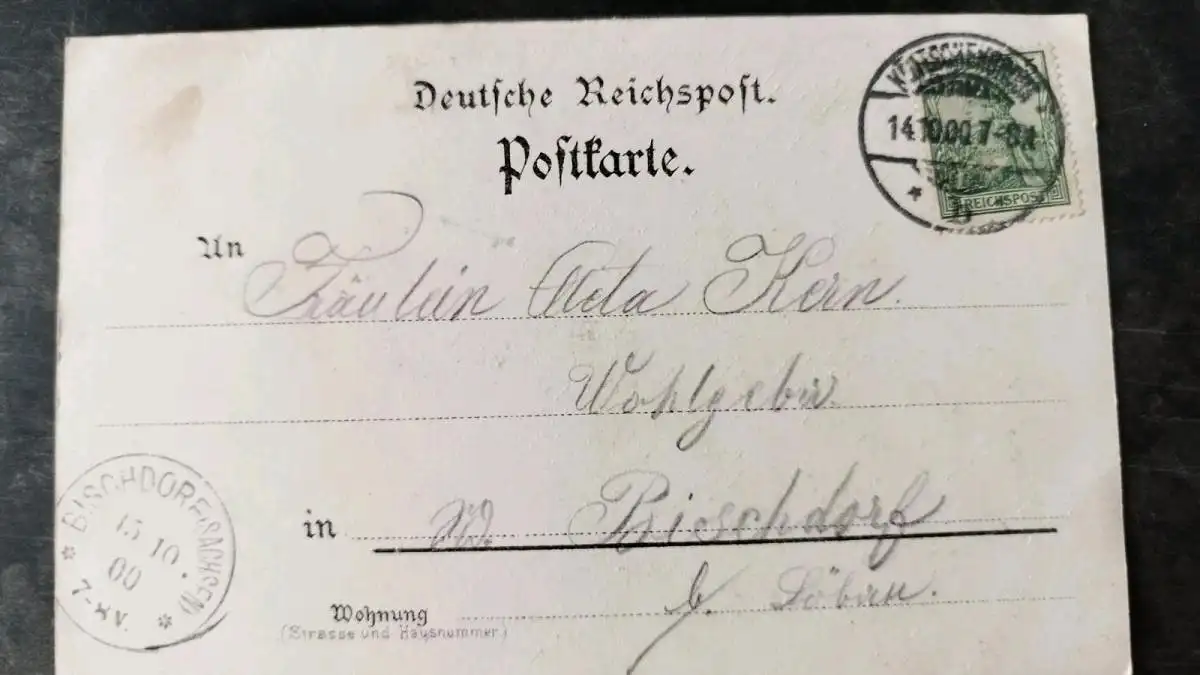 Deutsche Reichspost.
Postkarte.
14.10.00 7-8N
REICHSPOST
An Fräulein Meta Kern.
Wohlgebor.
in Bischdorf
b. Löbau.
Wohnung
(Strasse und Hausnummer.)
BISCHDORF (SACHSEN)
15 10.
00
7-8V.